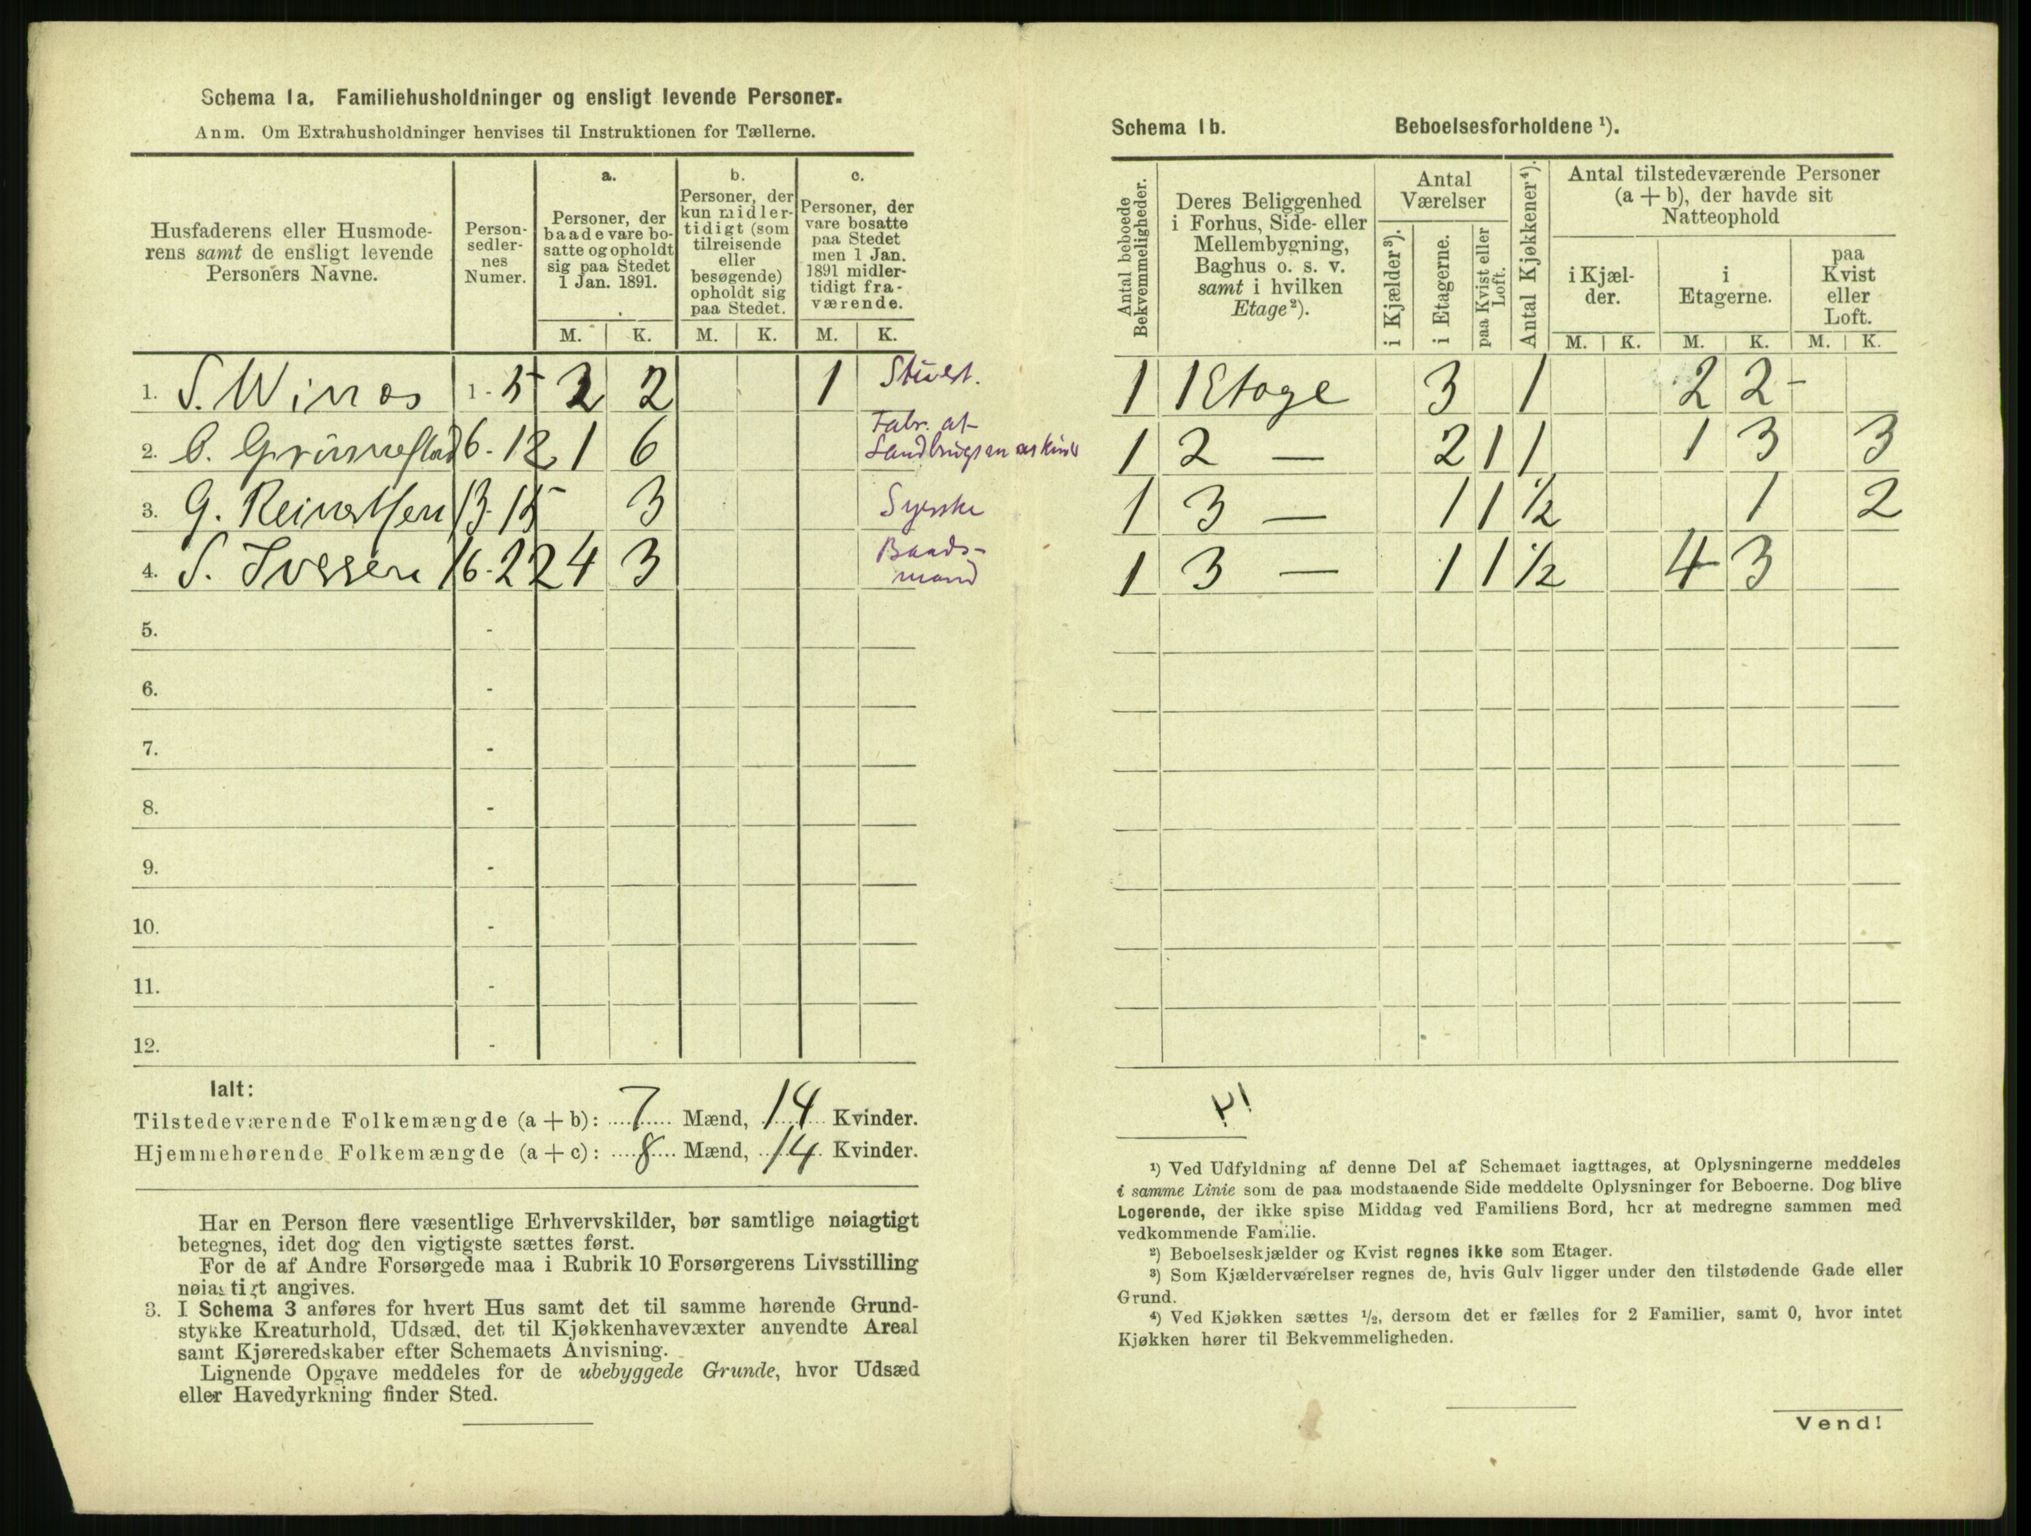 Schema 1a. Familiehusholdninger og ensligt levende Personer.
Anm. Om Extrahusholdninger henvises til Instruktionen for Tællerne.
Husfaderens eller Husmoderens samt de ensligt levende Personers Navne.
Personsedlernes Numer.
a.
Personer, der baade vare bosatte og opholdt sig paa Stedet 1 Jan. 1891.
b.
Personer, der kun midlertidigt (som tilreisende eller besøgende) opholdt sig paa Stedet.
c.
Personer, der vare bosatte paa Stedet men 1 Jan. 1891 midlertidigt fraværende.
M. K. M. K. M. K.
1. S. Winnes 1-5 2 2 1 Stuert.
2. O. Grimnestad 6-12 1 6 Fabr. af Landbrugsmaskiner
3. G. Reinertsen 13-15 3 Syerske
4. S. Iversen 16-22 4 3 Baadsmand
5. -
6. -
7. -
8. -
9. -
10. -
11. -
12. -
Ialt:
Tilstedeværende Folkemængde (a + b): 7 Mænd, 14 Kvinder.
Hjemmehørende Folkemængde (a + c): 8 Mænd, 14 Kvinder.
Har en Person flere væsentlige Erhvervskilder, bør samtlige nøiagtigt
betegnes, idet dog den vigtigste sættes først.
For de af Andre Forsørgede maa i Rubrik 10 Forsørgerens Livsstilling
nøiagtigt angives.
3. I Schema 3 anføres for hvert Hus samt det til samme hørende Grund-
stykke Kreaturhold, Udsæd, det til Kjøkkenhavevæxter anvendte Areal
samt Kjøreredskaber efter Schemaets Anvisning.
Lignende Opgave meddeles for de ubebyggede Grunde, hvor Udsæd
eller Havedyrkning finder Sted.
Schema 1b. Beboelsesforholdene ¹).
Antal beboede Bekvemmeligheder.
Deres Beliggenhed i Forhus, Side- eller Mellembygning, Baghus o. s. v. samt i hvilken Etage²).
Antal Værelser
i Kjælder³).
i Etagerne.
paa Kvist eller Loft.
Antal Kjøkkener⁴).
Antal tilstedeværende Personer (a + b), der havde sit Natteophold
i Kjælder.
i Etagerne.
paa Kvist eller Loft.
M. K. M. K. M. K.
1 1 Etage 3 1 2 2 -
1 2 — 2 1 1 1 3 3
1 3 — 1 1 ½ 1 2
1 3 — 1 1 ½ 4 3
21
¹) Ved Udfyldning af denne Del af Schemaet iagttages, at Oplysningerne meddeles
i samme Linie som de paa modstaaende Side meddelte Oplysninger for Beboerne. Dog blive
Logerende, der ikke spise Middag ved Familiens Bord, her at medregne sammen med
vedkommende Familie.
²) Beboelseskjælder og Kvist regnes ikke som Etager.
³) Som Kjælderværelser regnes de, hvis Gulv ligger under den tilstødende Gade eller
Grund.
⁴) Ved Kjøkken sættes ½, dersom det er fælles for 2 Familier, samt 0, hvor intet
Kjøkken hører til Bekvemmeligheden.
Vend!